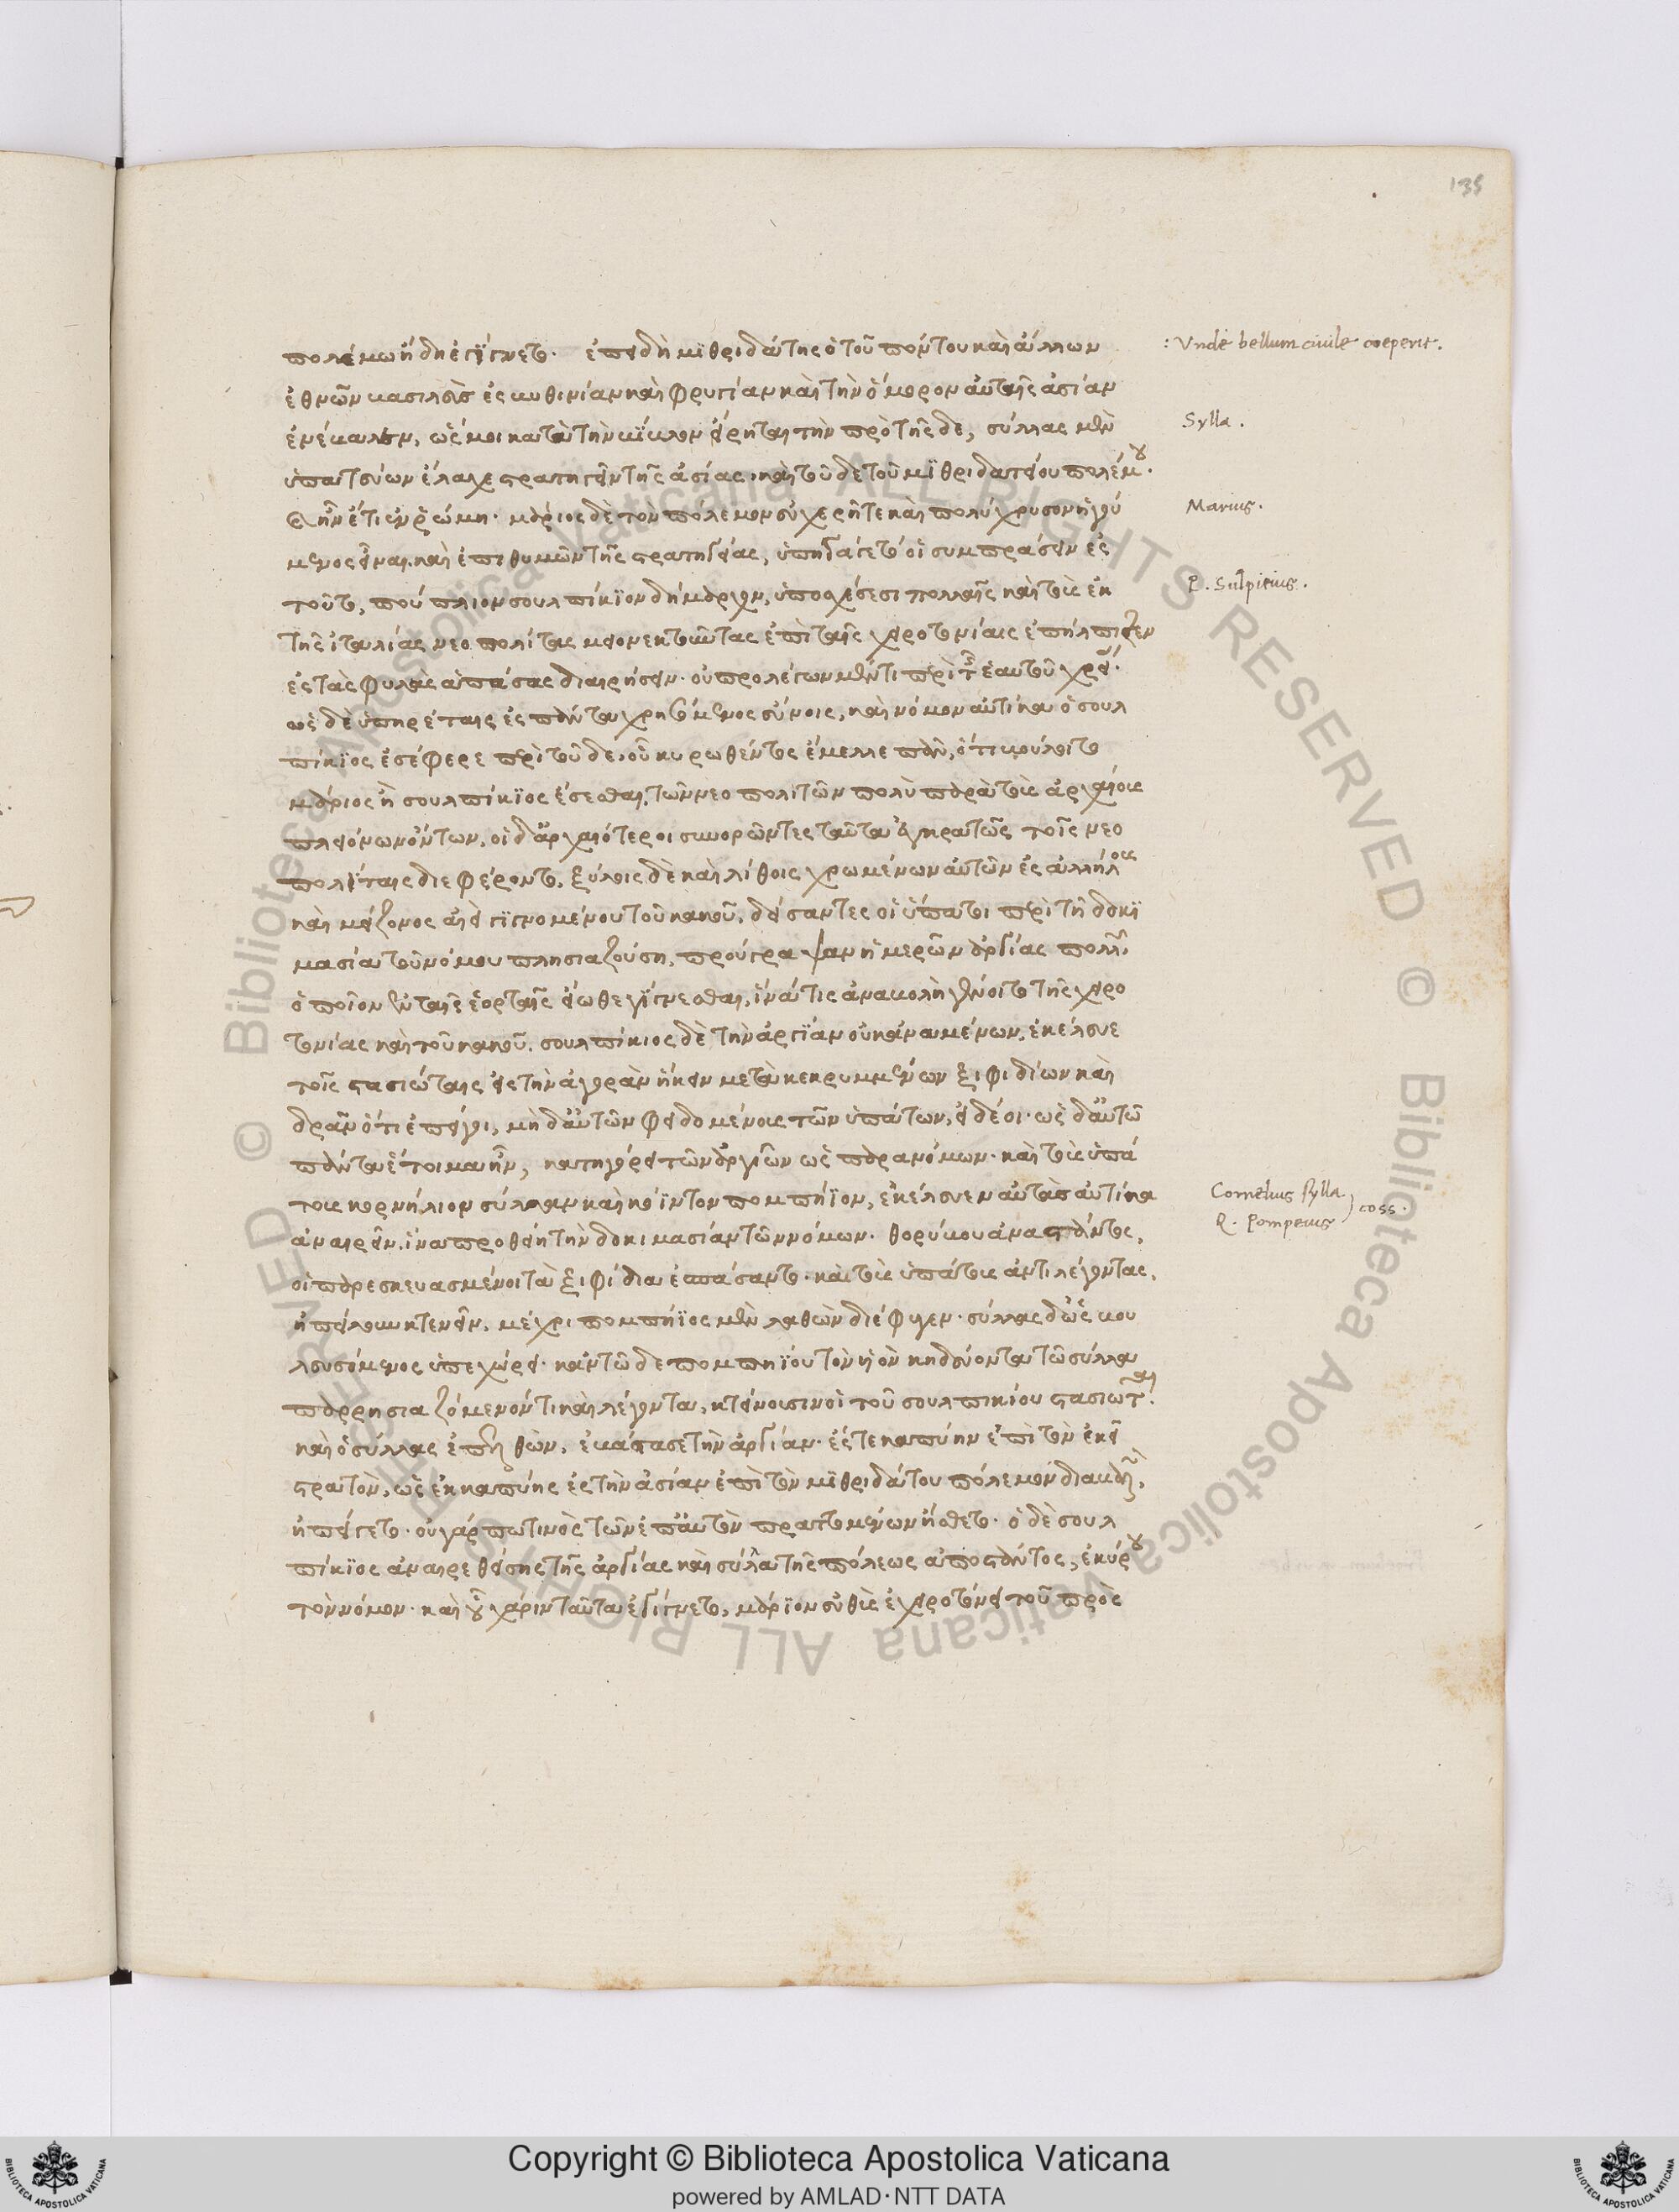 135
πολέμω ἤδη ἐγίγνετο. ἐπειδὴ μιθριδάτης ὁ τοῦ πόντου καὶ ἄλλων
: Vnde bellum ciuile coeperit.
ἐθνῶν βασιλεὺς ἐς βυθινίαν καὶ φρυγίαν καὶ τὴν ὅμορον αὐταῖς ἀσίαν
ἐνέβαλεν, ὥς μοι κατὰ τὴν βίβλον εἴρηται τὴν πρὸ τῆσδε, σύλλας μὲν
Sylla.
ὑπατεύων ἔλαχε στρατηγεῖν τῆς ἀσίας καὶ τοῦδε τοῦ μιθριδατείου πολέμου.
καὶ ἦν ἔτι ἐν ῥώμη. μάριος δὲ τὸν πόλεμον εὐχερῆ τε καὶ πολύχρυσον ἡγού
Marius.
μενος εἶναι, καὶ ἐπιθυμῶν τῆς στρατηγίας, ὑπηγάγετό οἱ συμπράσσειν ἐς
τοῦτο, πούπλιον σουλπίκιον δήμαρχον, ὑποσχέσεσι πολλαῖς καὶ τοὺς ἐκ
P. Sulpitius.
τῆς ἰταλίας νεοπολίτας μειονεκτοῦντας ἐπὶ ταῖς χειροτονίαις ἐπήλπιζεν
ἐς τὰς φυλὰς ἁπάσας διαιρήσειν. οὐ προλέγων μέν τι περὶ τῆς ἑαυτοῦ χρείας.
ὡς δὲ ὑπηρέταις ἐς πάντα χρησόμενος εὔνοις, καὶ νόμον αὐτίκα ὁ σουλ
πίκιος ἐσέφερε περὶ τοῦδε. οὗ κυρωθέντος ἔμελλε πᾶν, ὅτι βούλοιτο
μάριος ἢ σουλπίκιος ἔσεσθαι, τῶν νεοπολιτῶν πολὺ παρὰ τοὺς ἀρχαίους
πλειόνων ὄντων. οἱ δ' ἀρχαιότεροι συνορῶντες ταῦτα ἐγκρατῶς τοῖς νεο
πολίταις διεφέροντο. ξύλοις δὲ καὶ λίθοις χρωμένων αὐτῶν ἐς ἀλλήλους
καὶ μείζονος αἰεὶ γιγνομένου τοῦ κακοῦ, δείσαντες οἱ ὕπατοι περὶ τῇ δοκι
μασία τοῦ νόμου πλησιαζούση, προύγραψαν ἡμερῶν ἀργίας πολλῶν,
ὁποῖον ἐν ταῖς ἑορταῖς εἴωθε γίγνεσθαι, ἵνα τις ἀναβολὴ γένοιτο τῆς χειρο
τονίας καὶ τοῦ κακοῦ. σουλπίκιος δὲ τὴν ἀργίαν οὐκ ἀναμένων, ἐκέλευε
τοῖς στασιώταις εἰς τὴν ἀγορὰν ἥκειν μετὰ κεκρυμμένων ξιφιδίων καὶ
δρᾶν ὅτι ἐπείγοι, μὴ δ' αὐτῶν φειδομένους τῶν ὑπάτων, εἰ δέοι. ὡς δ' αὐτῶ
πάντα ἕτοιμα ἦν, κατηγόρει τῶν ἀργιῶν ὡς παρανόμων. καὶ τοὺς ὑπά
τους κορνήλιον σύλλαν καὶ κόϊντον πομπήϊον, ἐκέλευεν αὐτὰς αὐτίκα
Cornelius Sylla
Q. Pompeius } coss.
ἀναιρεῖν, ἵνα προθείη τὴν δοκιμασίαν τῶν νόμων. θορύβου ἀναστάντος,
οἱ παρεσκευασμένοι τὰ ξιφίδια ἐσπάσαντο. καὶ τοὺς ὑπάτους ἀντιλέγοντας,
ἠπείλουν κτενεῖν. μέχρι πομπήϊος μὲν λαθὼν διέφυγεν. σύλλας δ' ὡς βου
λευσόμενος ὑπεχώρει. κἀν τῶδε πομπηΐου τὸν υἱὸν κηδεύοντα τῶ σύλλα
παρρησιαζόμενόν τι καὶ λέγοντα, κτείνουσιν οἱ τοῦ σουλπικίου στασιῶται.
καὶ ὁ σύλλας ἐπελθὼν, ἐβάστασε τὴν ἀργίαν. ἔς τε καπύην ἐπὶ τὸν ἐκεῖ
στρατὸν, ὡς ἐκ καπύης ἐς τὴν ἀσίαν ἐπὶ τὸν μιθριδάτου πόλεμον διαβαλῶν,
ἠπείγετο. οὐ γάρ πω τινὸς τῶν ἐπ' αὐτὸν πραττομένων ᾔσθετο. ὁ δὲ σουλ
πίκιος ἀναιρεθείσης τῆς ἀργίας καὶ σύλλα τῆς πόλεως ἀποστάντος, ἐκύρου
τὸν νόμον. καὶ οὗ χάριν ταῦτα ἐγίγνετο, μάριον εὐθὺς ἐχειροτόνει τοῦ πρὸς
Copyright © Biblioteca Apostolica Vaticana
powered by AMLAD·NTT DATA